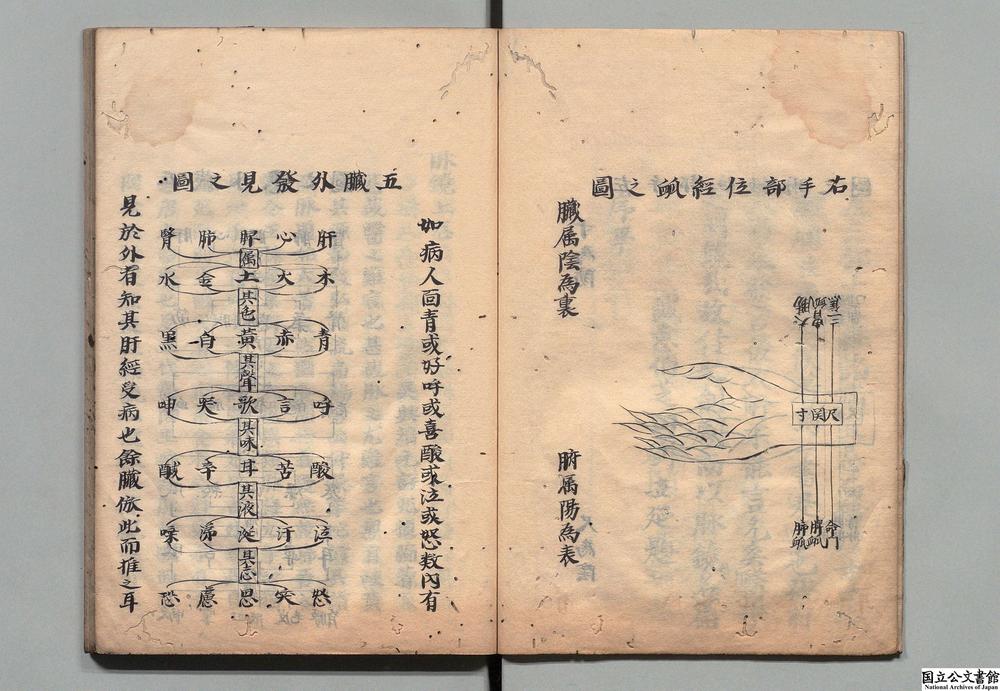 右手部位經脉之圖
臟属陰為裏
腑属陽為表
三焦
胃脉
大腸
尺関寸
命門
脾脉
肺脉
如病人面青或好呼或喜酸或泣或怒数內有
五臟外發見之圖
肝心脾肺腎
属
木火土金水
其色
青赤黃白黒
其聲
呼言歌哭呻
其味
酸苦甘辛鹹
其液
泣汗涎涕唾
其志
怒笑思慮恐
見於外者知其肝經受病也餘臟倣此而推之耳
国立公文書館
National Archives of Japan